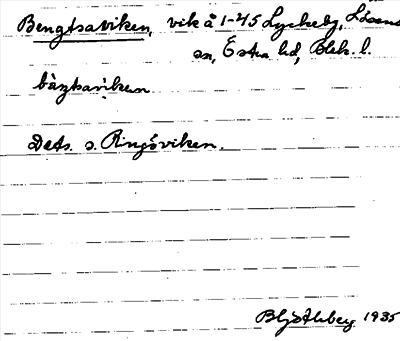 Bengtsaviken, vik å 1-45 Lyckeby, Lösens
sn, Östra hd, Blek. l.
bàŋtsavikᴀn
Dets. s. Ringöviken.
1935